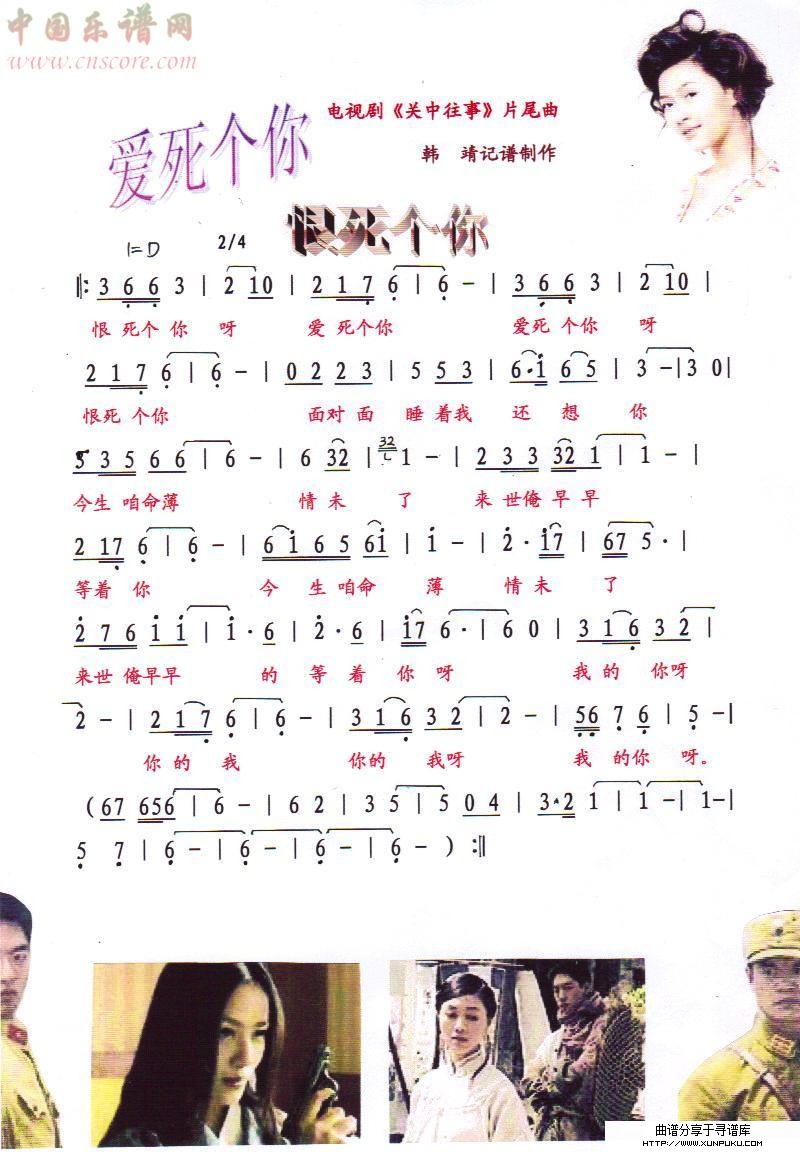 中国乐谱网
www.cnscore.com
电视剧《关中往事》片尾曲
爱死个你
韩 靖记谱制作
恨死个你
1=D 2/4
‖: 3 6 6 3 | 2 10 | 2 1 7 6 | 6 - | 3 6 6 3 | 2 10 |
恨 死个 你 呀 爱 死个你 爱死 个你 呀
2 1 7 6 | 6 - | 0 2 2 3 | 5 5 3 | 6·i 6 5 | 3 - | 3 0 |
恨死 个你 面对 面 睡 着我 还 想 你
5 3 5 6 6 | 6 - | 6 32 | 32 1 - | 2 3 3 32 1 | 1 - |
今生 咱命薄 情 未 了 来 世俺 早 早
2 17 6 | 6 - | 6 i 6 5 6i | i - | 2· i7 | 67 5· |
等着 你 今 生 咱命 薄 情 未 了
2 7 6 i i | i· 6 | 2· 6 | i7 6· | 6 0 | 3 1 6 3 2 |
来世 俺早早 的 等 着 你 呀 我 的 你呀
2 - | 2 1 7 6 | 6 - | 3 1 6 3 2 | 2 - | 56 7 6 | 5 - |
你 的 我 你的 我呀 我 的你 呀。
( 67 656 | 6 - | 6 2 | 3 5 | 5 0 4 | 3·2 1 | 1 - | 1 - |
5 7 | 6 - | 6 - | 6 - | 6 - ) :‖
曲谱分享于寻谱库
HTTP://WWW.XUNPUKU.COM